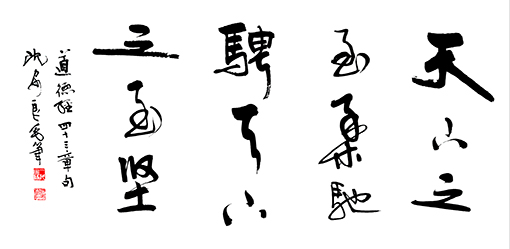 天下之
至柔馳
騁天下
之至堅
道德經四十三章句